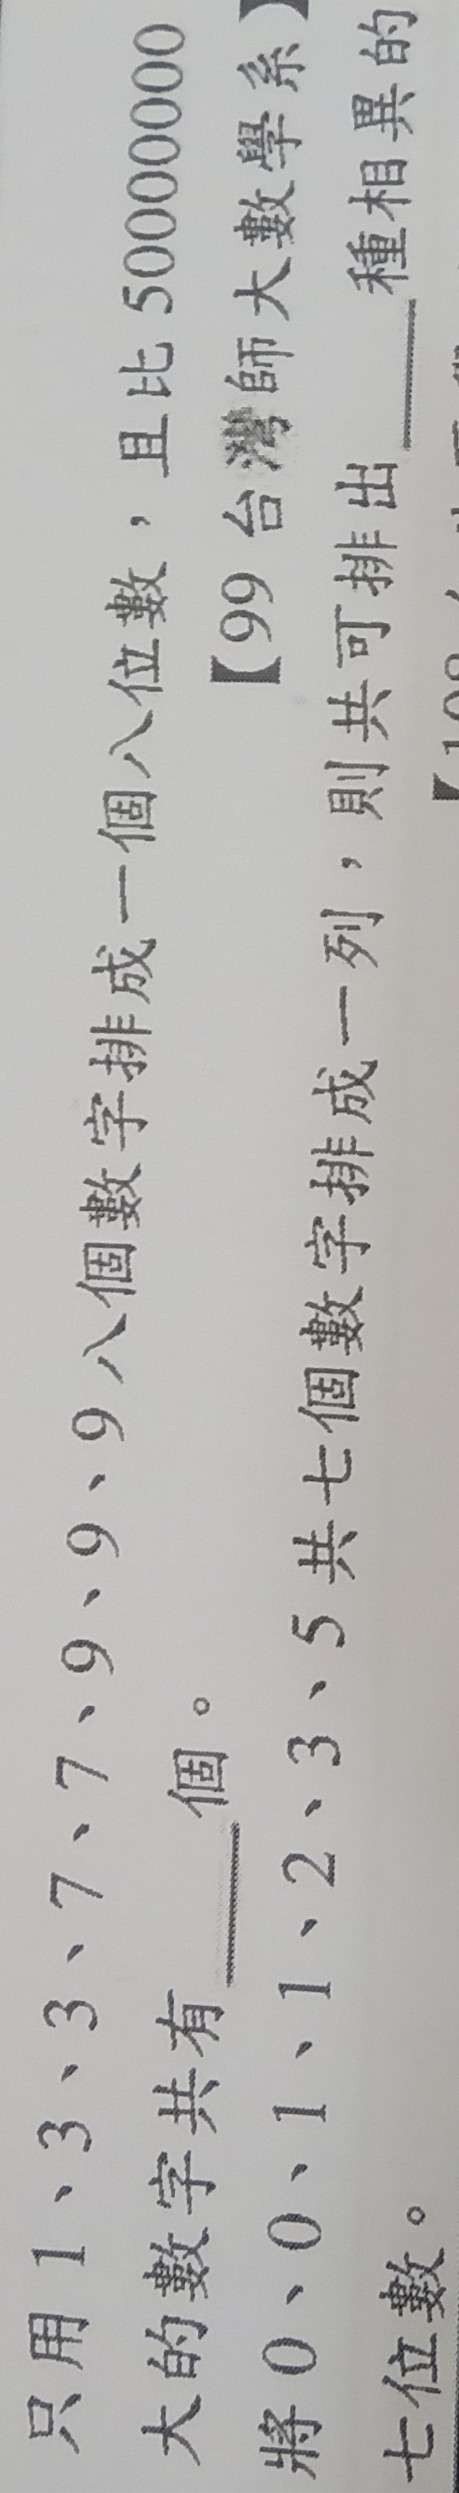 只用 1、3、3、7、7、9、9、9 八個數字排成一個八位數，且比 50000000
大的數字共有____個。 【99 台灣師大數學系】
將 0、0、1、1、2、3、5 共七個數字排成一列，則共可排出____種相異的
七位數。